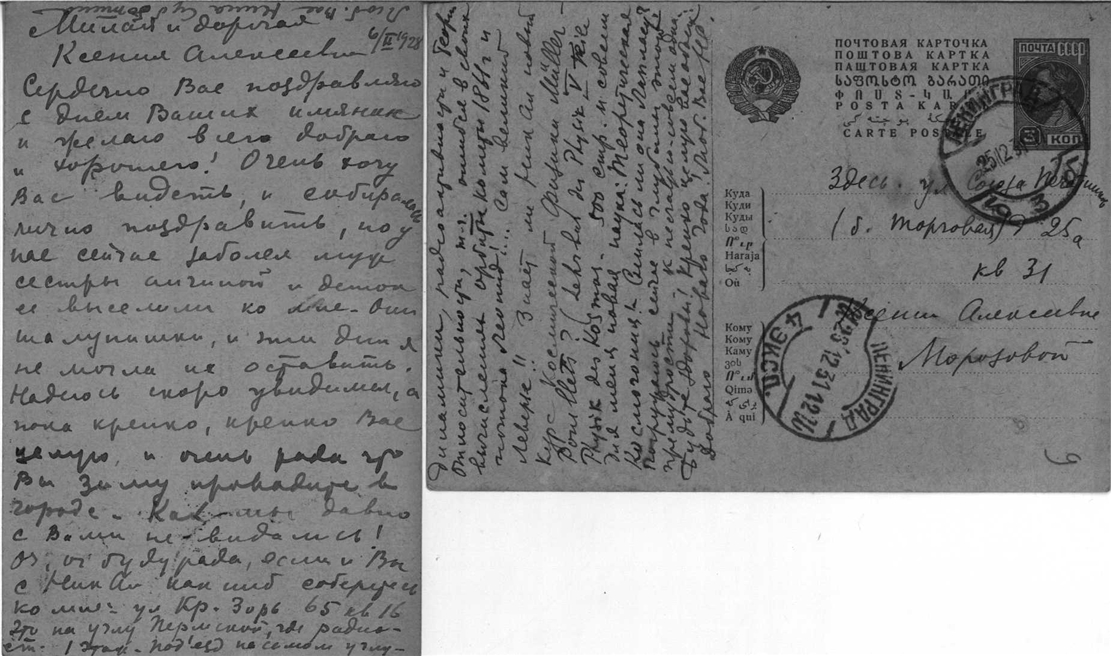 Милая и дорогая
6/II 1928
Ксения Алексеевна
Сердечно Вас поздравляю
с днем Ваших имянин
и желаю всего доброго
и хорошего! Очень хочу
Вас видеть, и собиралась
лично поздравить, но у
нас сейчас заболел муж
сестры ангиной и деток
ее выселили ко мне. Они
шалунишки, и эти дни я
не могла их оставить.
Надеюсь скоро увидимся, а
пока крепко, крепко Вас
целую, и очень рада что
Вы зиму проводите в
городе. Как мы давно
с Вами не видались!
буду рада, если и Вы
с Ник Ал как ниб соберетесь
ко мне: ул Кр. Зорь 65 кв 16
Это на углу Пермской, где радио-
ст. 1 этаж. Под'езд на самом углу-
динамики, радиоактивности и теории
относительности, т.е. ошибся в своих
вычислениях орбиты кометы 1811 г и
потома Леонид!... Сам великий
Леверье!! Знает ли Ник Ал новый
курс Космической Физики Müller-
Pouillets? (Lehrbuch der Physik V
Physik des Kosmos - 500 стр. и совсем
для меня новая наука: Теоретическая
Космогония! Снилась ли она Лапласу?
Погружаюсь сейчас в глубины этой
премудрости,
Будьте здоровы! Крепко целую Вас обоих.
Доброго Нового Года. Люб. Вас НР
ПОЧТОВАЯ КАРТОЧКА
ПОШТОВА КАРТКА
ПАШТОВАЯ КАРТКА
ᲡᲐᲤᲝᲡᲢᲝ ᲑᲐᲠᲐᲗᲘ
POSTA KAR
CARTE POSTALE
ПОЧТА СССР
3 КОП
ЛЕНИНГРАД
25.12.31
Куда
Куди
Куды
Haraja
Où
Здесь. ул. Союза Печатников
(б. Торговая) д 25а
кв 31
Кому
Кому
Каму
Qimə
À qui
Ксении Алексеевне
Морозовой
ЛЕНИНГРАД
25.12.31.12
4 ЭКСП.
9